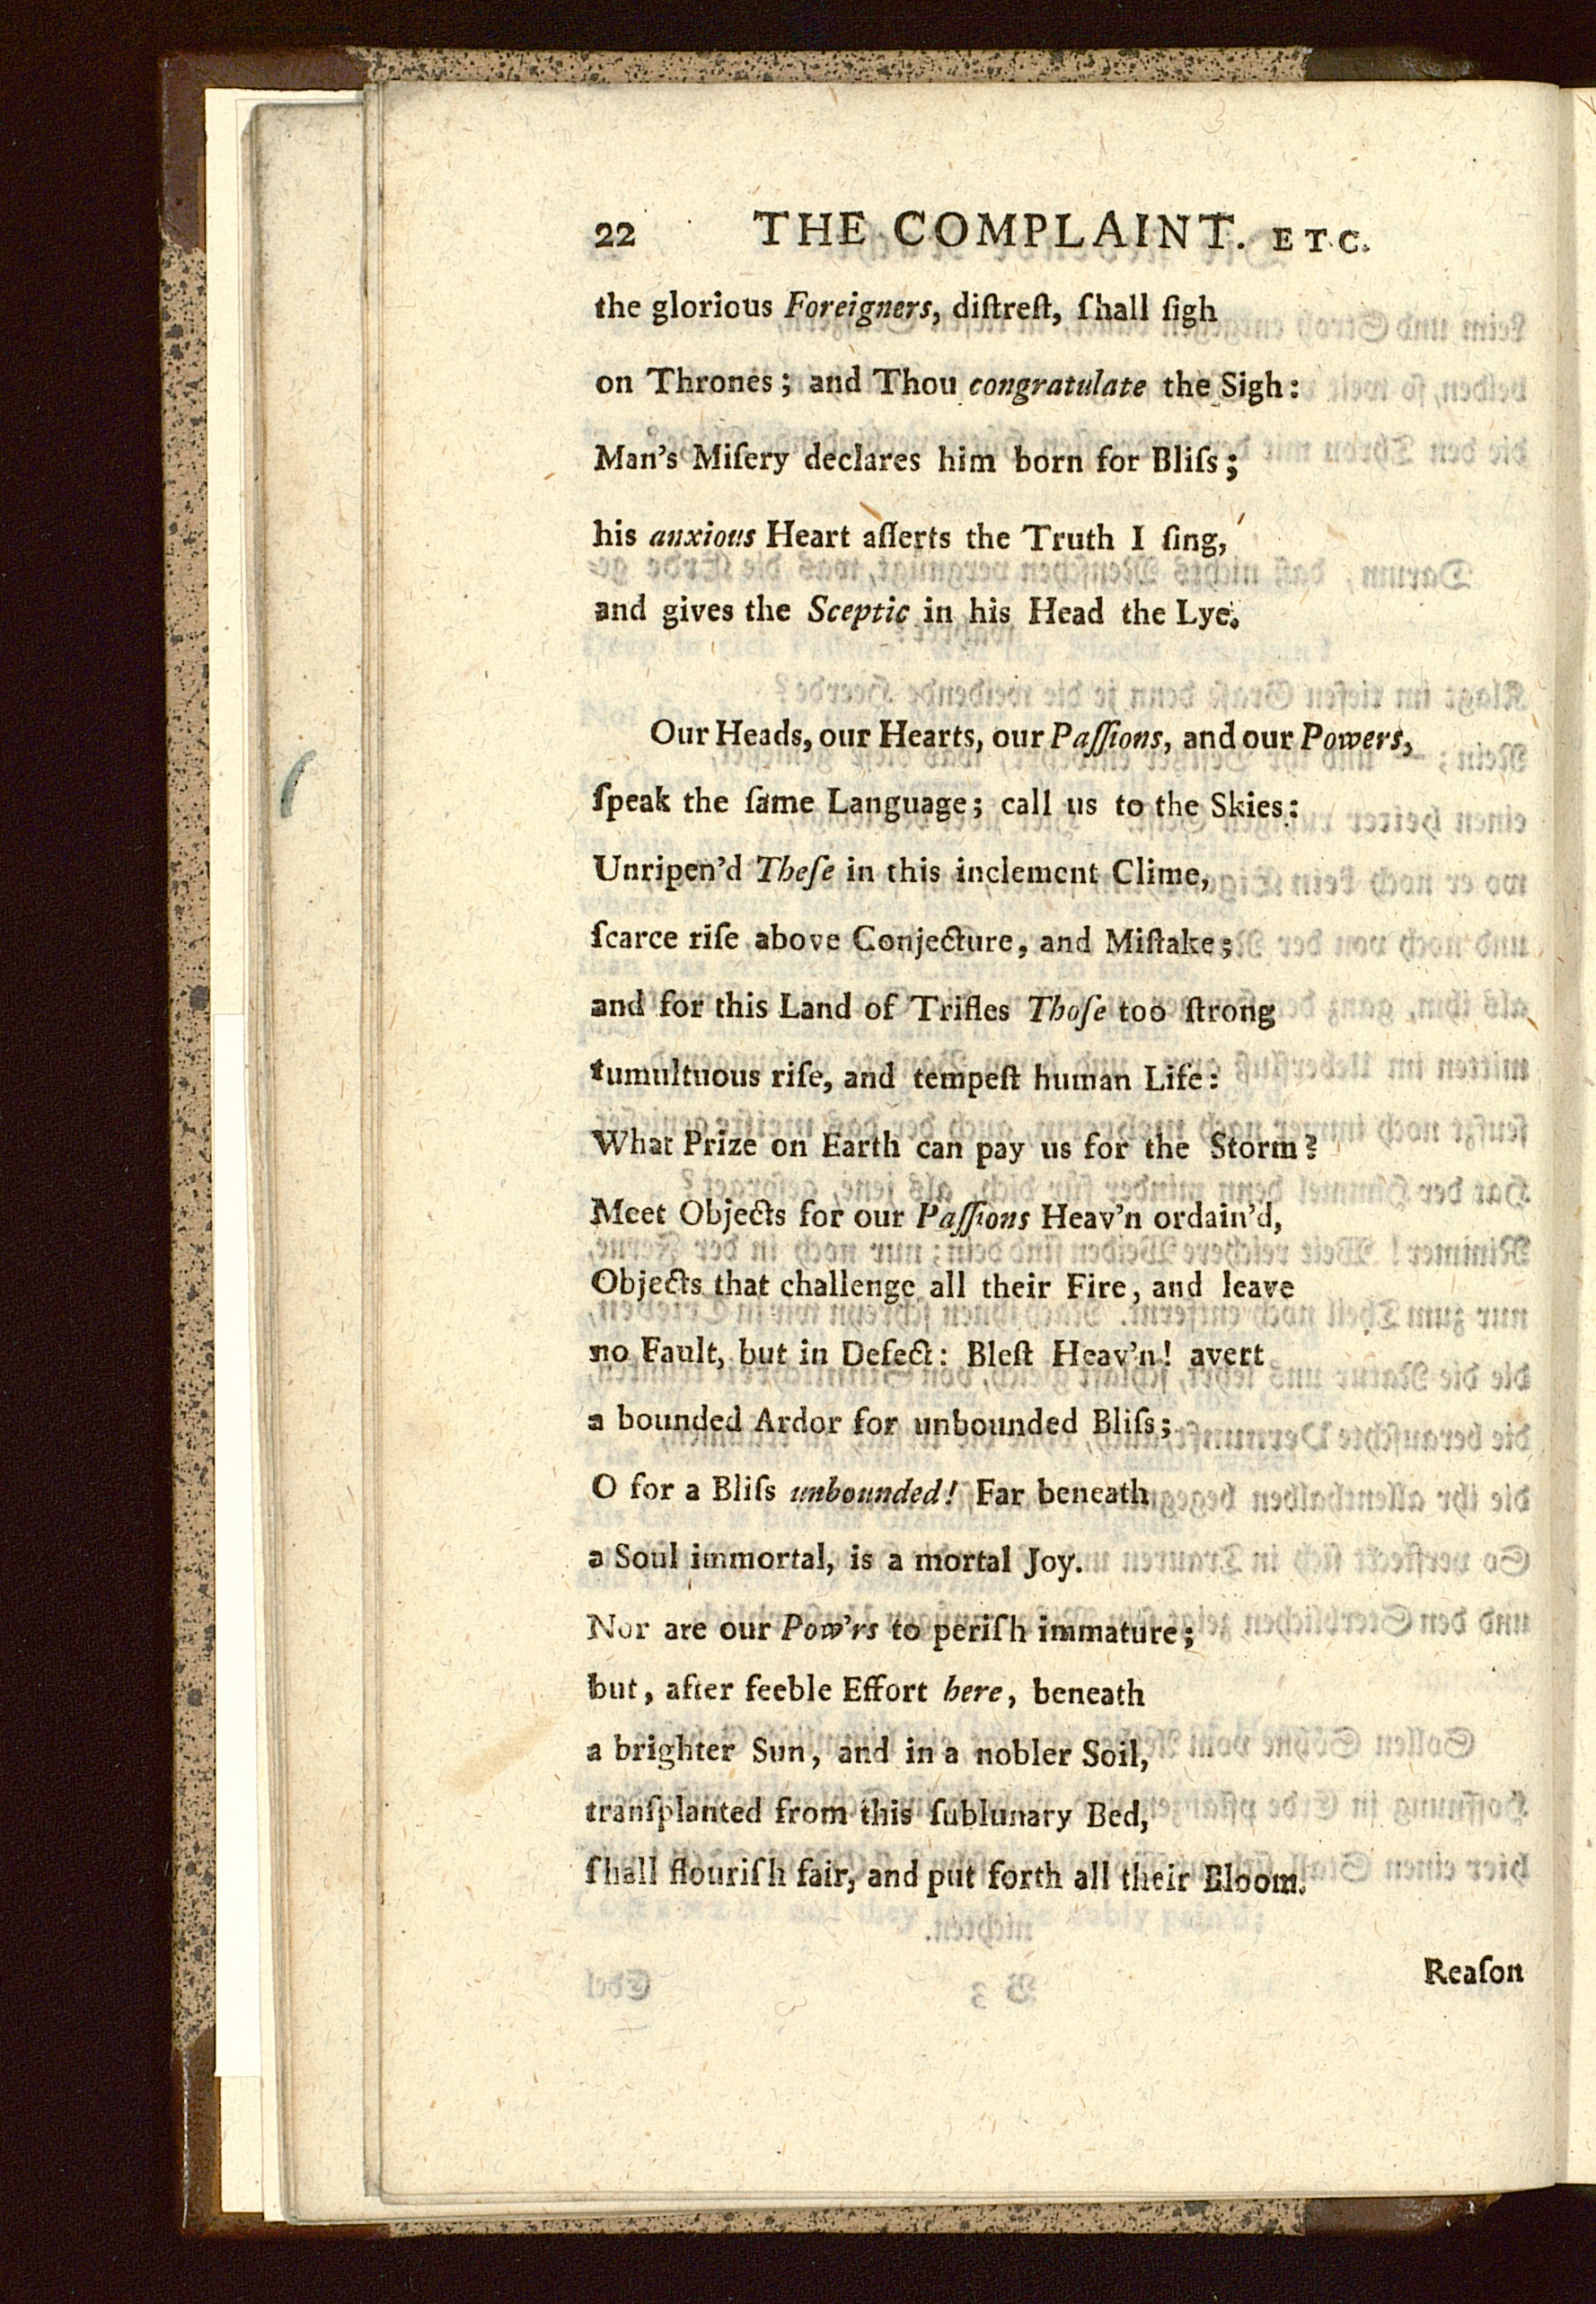 22 THE COMPLAINT. ETC.
the glorious Foreigners, diſtreſt, ſhall ſigh
on Thrones; and Thou congratulate the Sigh:
Man's Miſery declares him born for Bliſs;
his anxious Heart aſſerts the Truth I ſing,
and gives the Sceptic in his Head the Lye.
Our Heads, our Hearts, our Paſſions, and our Powers,
ſpeak the ſame Language; call us to the Skies:
Unripen'd Theſe in this inclement Clime,
ſcarce riſe above Conjecture, and Miſtake;
and for this Land of Trifles Thoſe too ſtrong
tumultuous riſe, and tempeſt human Life:
What Prize on Earth can pay us for the Storm?
Meet Objects for our Paſſions Heav'n ordain'd,
Objects that challenge all their Fire, and leave
no Fault, but in Defect: Bleſt Heav'n! avert
a bounded Ardor for unbounded Bliſs;
O for a Bliſs unbounded! Far beneath
a Soul immortal, is a mortal Joy.
Nor are our Pow'rs to periſh immature;
but, after feeble Effort here, beneath
a brighter Sun, and in a nobler Soil,
tranſplanted from this ſublunary Bed,
ſhall flouriſh fair, and put forth all their Bloom.
Reaſon